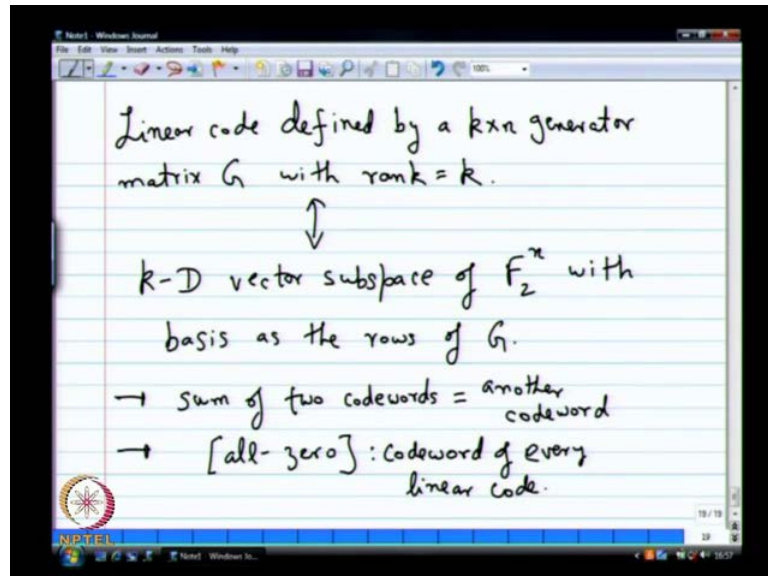 Note1 - Windows Journal
File Edit View Insert Actions Tools Help
100%
Linear code defined by a k×n generator
matrix G with rank = k.
↕
k-D vector subspace of F₂ⁿ with
basis as the rows of G.
→ sum of two codewords = another codeword
→ [all-zero] : codeword of every
linear code.
19 / 19
19
NPTEL
Note1 - Windows Jo...
16:57